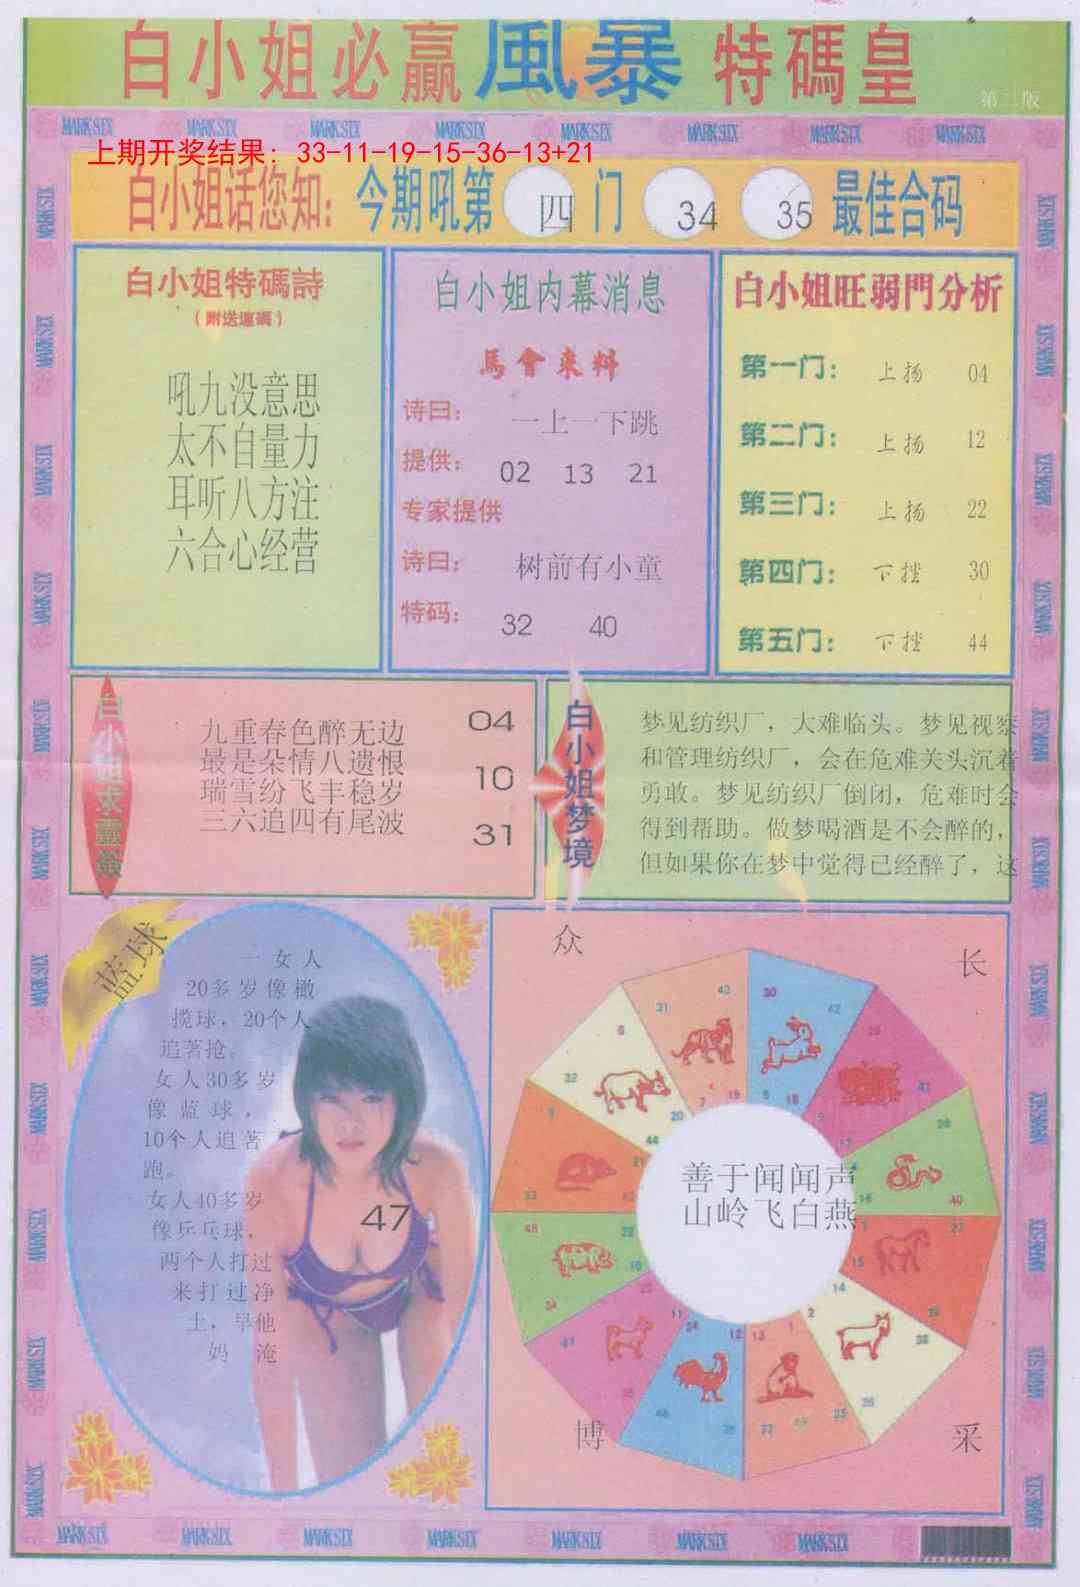 白小姐必赢風暴特碼皇
第二版
上期开奖结果: 33-11-19-15-36-13+21
白小姐话您知: 今期吼第 四 门 34 35 最佳合码
白小姐特碼詩
吼九没意思
太不自量力
耳听八方注
六合心经营
白小姐内幕消息
馬會来料
诗曰: 一上一下跳
提供: 02 13 21
专家提供
诗曰: 树前有小童
特码: 32 40
白小姐旺弱門分析
第一门: 上扬 04
第二门: 上扬 12
第三门: 上扬 22
第四门: 下挫 30
第五门: 下挫 44
九重春色醉无边
最是朵情八遗恨
瑞雪纷飞丰稳岁
三六追四有尾波
04
10
31
白小姐梦境
梦见纺织厂，大难临头。梦见视察
和管理纺织厂，会在危难关头沉着
勇敢。梦见纺织厂倒闭，危难时会
得到帮助。做梦喝酒是不会醉的，
但如果你在梦中觉得已经醉了，这
蓝球
一女人
20多岁像橄
揽球，20个人
追著抢。
女人30多岁
像蓝球，
10个人追著
跑。
女人40多岁
像乒乓球，
两个人打过
来打过净
土，早他
妈淹
47
众
长
善于闻闻声
山岭飞白燕
博
采
MARK SIX